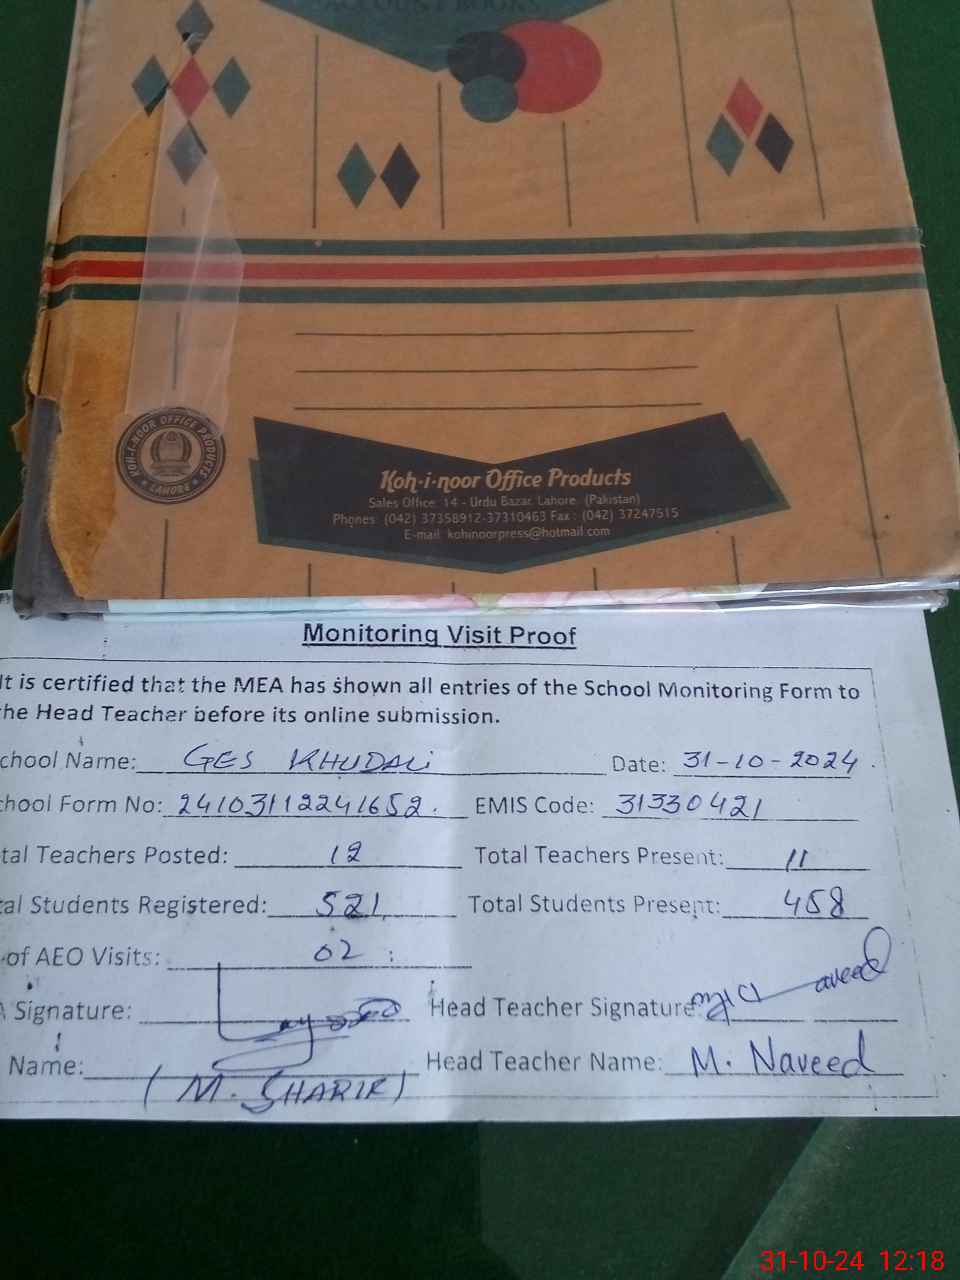 ACCOUNT BOOKS
KOH-I-NOOR OFFICE PRODUCTS
LAHORE
Koh-i-noor Office Products
Sales Office: 14 - Urdu Bazar, Lahore. (Pakistan)
Phones: (042) 37358912-37310463 Fax : (042) 37247515
E-mail: kohinoorpress@hotmail.com
Monitoring Visit Proof
It is certified that the MEA has shown all entries of the School Monitoring Form to
he Head Teacher before its online submission.
chool Name: GES KHUDALi Date: 31-10-2024
chool Form No: 24103112241652. EMIS Code: 31330421
tal Teachers Posted: 12 Total Teachers Present: 11
al Students Registered: 521 Total Students Present: 458
of AEO Visits: 02
Signature: Head Teacher Signature: aveed
Name: (M. SHARIF) Head Teacher Name: M. Naveed
31-10-24 12:18